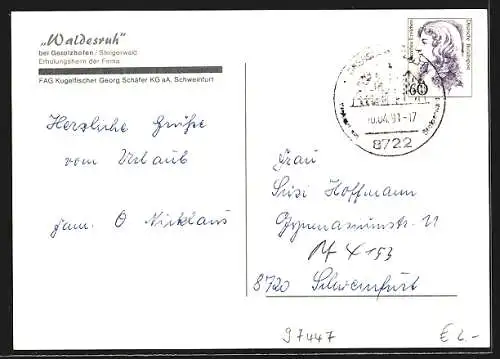 „Waldesruh"
bei Gerolzhofen / Steigerwald
Erholungsheim der Firma
FAG Kugelfischer Georg Schäfer KG aA, Schweinfurt
Herzliche Grüße
vom Urlaub
Fam. O Nicklaus
Deutsche Bundespost
60
10.04.91-17
8722
Frau
Susi Hoffmann
Gymnasiumstr. 11
8720 Schweinfurt
97447
€ 2.-